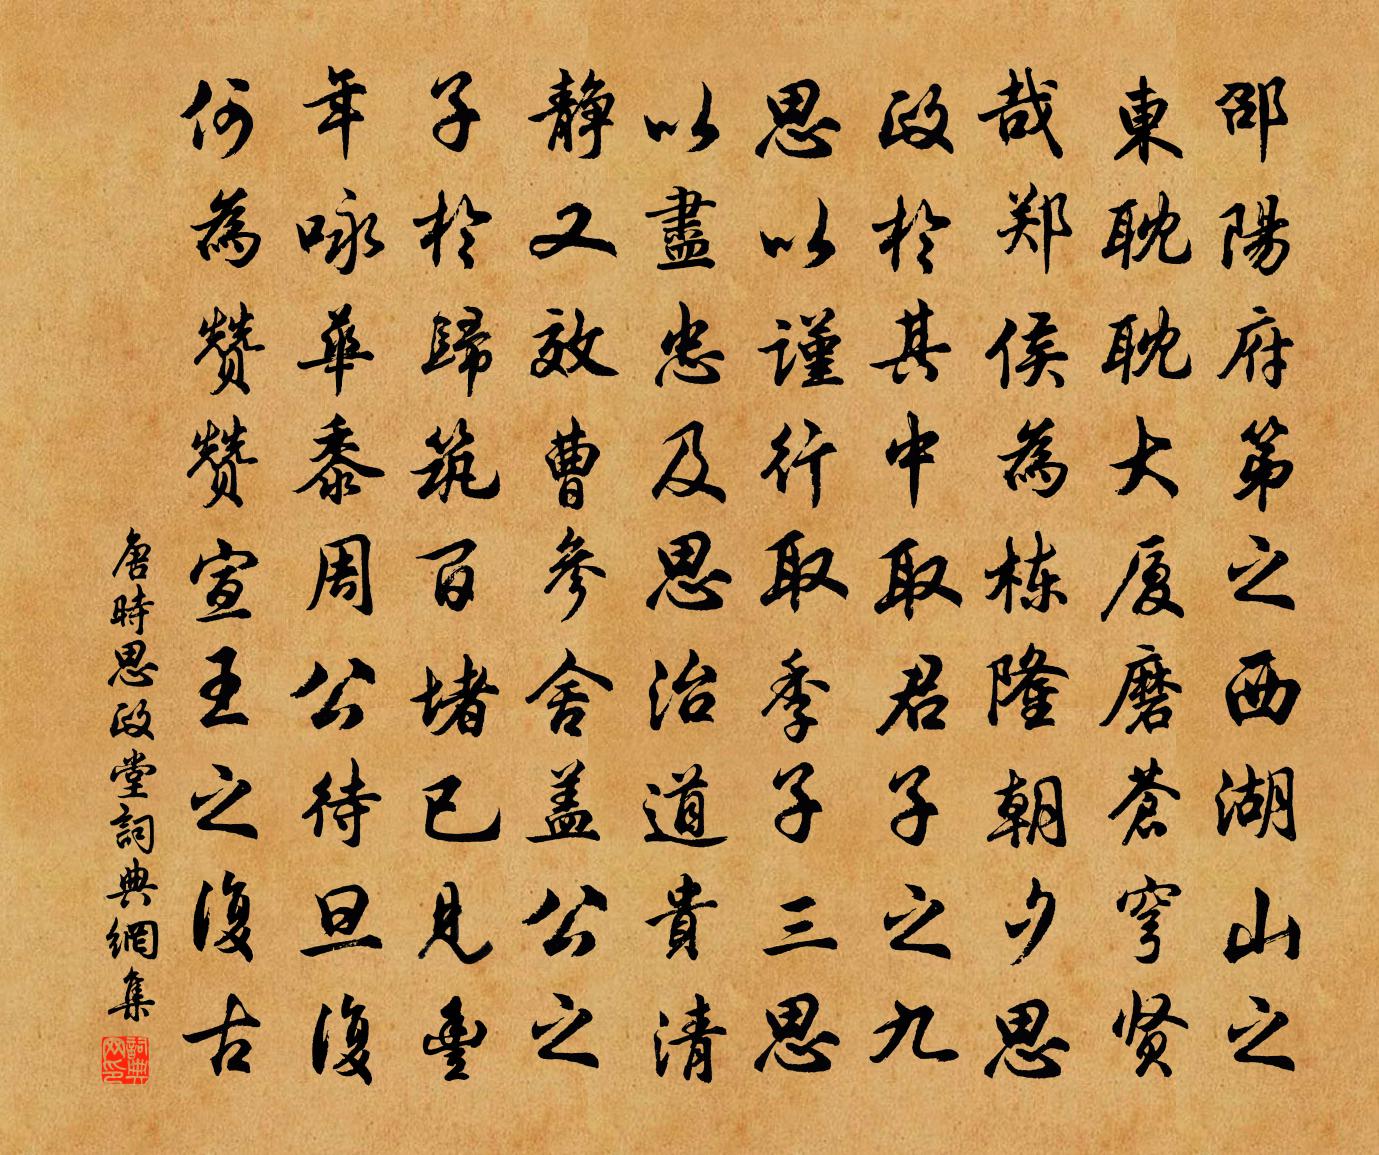 邵陽府第之西湖山之
東耽耽大厦磨蒼穹贤
哉郑侯為栋隆朝夕思
政於其中取君子之九
思以谨行取季子三思
以盡忠及思治道貴清
静又效曹參舍盖公之
子於歸筑百堵已見豊
年咏華黍周公待旦復
何為赞赞宣王之復古
唐時思政堂詞典網集
詞典網印